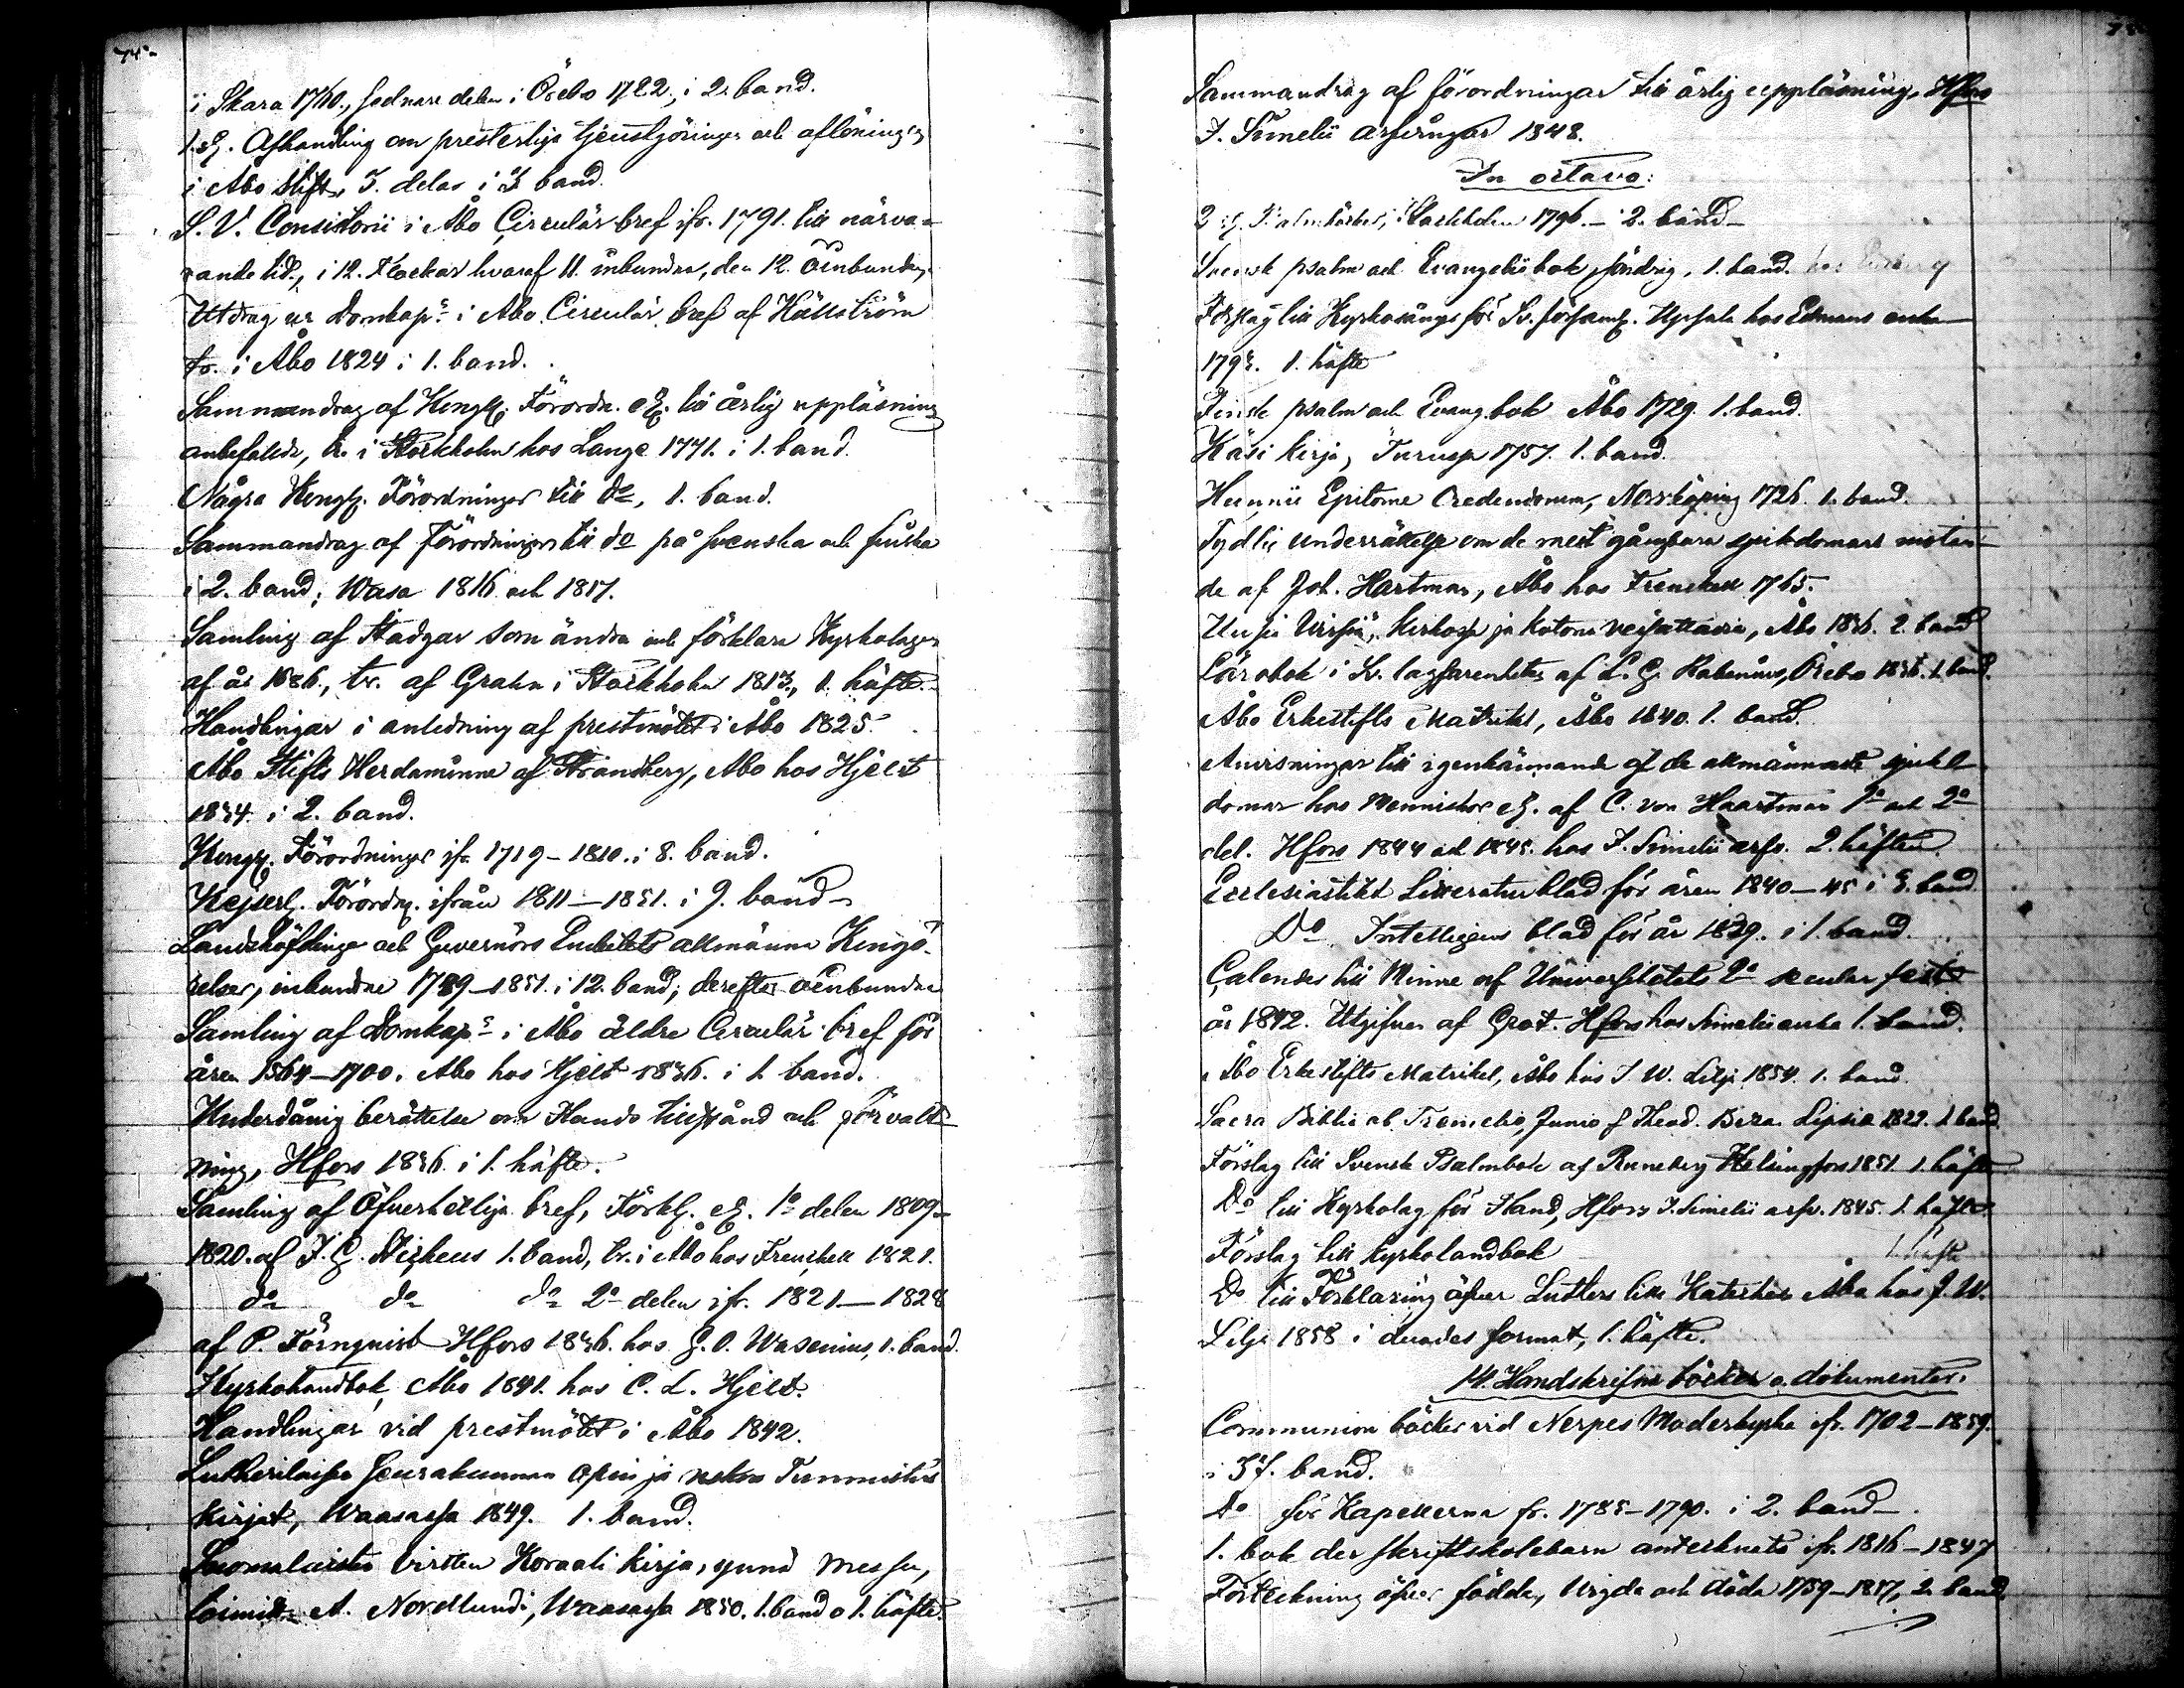 i Skara 1760, sednare delen i Örebo 1722, i 2 band.
Afhandling om presterliga tjenstgöringen och aflöningen
i Åbo stift, 3. delar i 3 band.
S. V. Consistorii i Åbo Circulär bref ifr. 1791. till närva-
rande tid, i 12. Flockar hvaraf 11. inbundna, den 12. oinbunden
Utdrag ur Domkap:s i Åbo Circulär bref af Hällström
tr. i Åbo 1824 i 1. band.
Sammandrag af Kongl. Förordn. till årlig uppläsning
anbefallde, tr. i Stockholm hos Lange 1771. i 1. band.
Några Kongl. Förordningar till do, 1. band.
Sammandrag af Förordningar till do på svenska och finska
i 2. band; Wasa 1816 och 1857.
Samling af Stadgar som ändra och förklara Kyrkolagen
af år 1686, tr. af Grahn i Stockholm 1813, 1. häfte.
Handlingar i anledning af prestmötet i Åbo 1825.
Åbo Stifts Herdaminne af Strandberg, Åbo hos Hjelt
1834 i 2. band.
Kongl. Förordningar ifr. 1719-1810. i 8. band.
Kejserl. Förordn. ifrån 1811-1851. i 9. band
Landshöfdinge och Guvernörs Embetets allmänna Kungö-
relser, inbundne 1789-1851. i 12. band; derefter oinbundne
Samling af Domkap:s i Åbo äldre Circulär bref för
åren 1564-1700. Åbo hos Hjelt 1836. i 1. band.
Underdånig berättelse om Finlands tillstånd och förvalt-
ning, Hfors 1836. i 1. häfte.
Samling af Öfverhetliga bref, Förkl. 1o delen 1809-
1820. af 1. band, tr. i Åbo hos Frenckell 1821.
do do do 2o delen ifr. 1821-1828
af P. Törnqvist Hfors 1836. hos G. O. Wasenius, 1. band.
Kyrkohandbok, Åbo 1841. hos C. L. Hjelt.
Handlingar vid prestmötet i Åbo 1842.
Lutherilaisen Seurakunnan opin ja uskon Tunnustus
kirjat, Waasassa 1849. 1. band.
Suomalaisten Virtten Koraali kirja, ynnä Messu,
toimitt. A. Nordlundi, Waasassa 1850. 1. band o 1. häfte.
Sammandrag af förordningar till årlig uppläsning, Hfors
J. Simelii arfvingar 1848.
In octavo:
Stockholm 1796. - i 2. band
Svensk psalm och Evangelii bok, 1. band.
Förslag till Kyrkosångs för Sv. församl. Upsala hos Edmans enka
1793. 1. häfte
Finsk psalm och Evang. bok Åbo 1729. 1. band.
Käsi kirja, Turussa 1757. 1. band.
Hunnii Epitome Credendorum, Norrköping 1726. 1. band.
Tydlig underrättelse om de mest gångbara sjukdomars motan-
de af Joh. Hartman, Åbo hos Frenckell 1765.
Uusia Virsiä, Kirkossa ja Kotona veisattavia, Åbo 1836. 2. band
Lärobok i Sv. lagfarenheten af L. G. Rabenius, Örebo 1836. 1. band.
Åbo Erkestifts Matrikel, Åbo 1840. 1. band.
Anvisningar till igenkännande af de allmännaste sjuk-
domar hos Menniskor af C. von Haartman 1o och 2o
del. Hfors 1844 och 1845. hos J. Simelii arfv. 2. häften.
Ecclesiastikt Litteratur blad för åren 1840-45 i 3. band
Do Intelligens blad för år 1839. i 1. band.
Calender till Minne af Universitetets 2a secular fest
år 1842. Utgifven af Grot. Hfors hos Simelii enka 1. band.
Åbo Erkestifts Matrikel, Åbo hos J. W. Lilja 1854. 1. band.
Sacra Biblia ab Tremelio, Junio & Theod. Beza. Lipsia 1. band.
Förslag till Svensk Psalmbok af Runeberg Helsingfors 1851. 1. häfte
Do till Kyrkolag för Finland, Hfors J. Simelii arfv. 1845. 1. häfte.
Förslag till Kyrkohandbok 1. häfte
Do till Förklaring öfver Luthers lilla Kateches Åbo hos J. W.
Lilja 1858 i duodes format, 1. häfte.
14. Handskrifna böcker o. dokumenter.
Communion böcker vid Nerpes Moderkyrka ifr. 1702-1859.
i 37. band.
Do för Kapellerna fr. 1785-1790. i 2. band.
1. bok der skriftskolebarn antecknats ifr. 1816-1847
Förteckning öfver födda, Vigda och döda 1759-1857, 2. band.